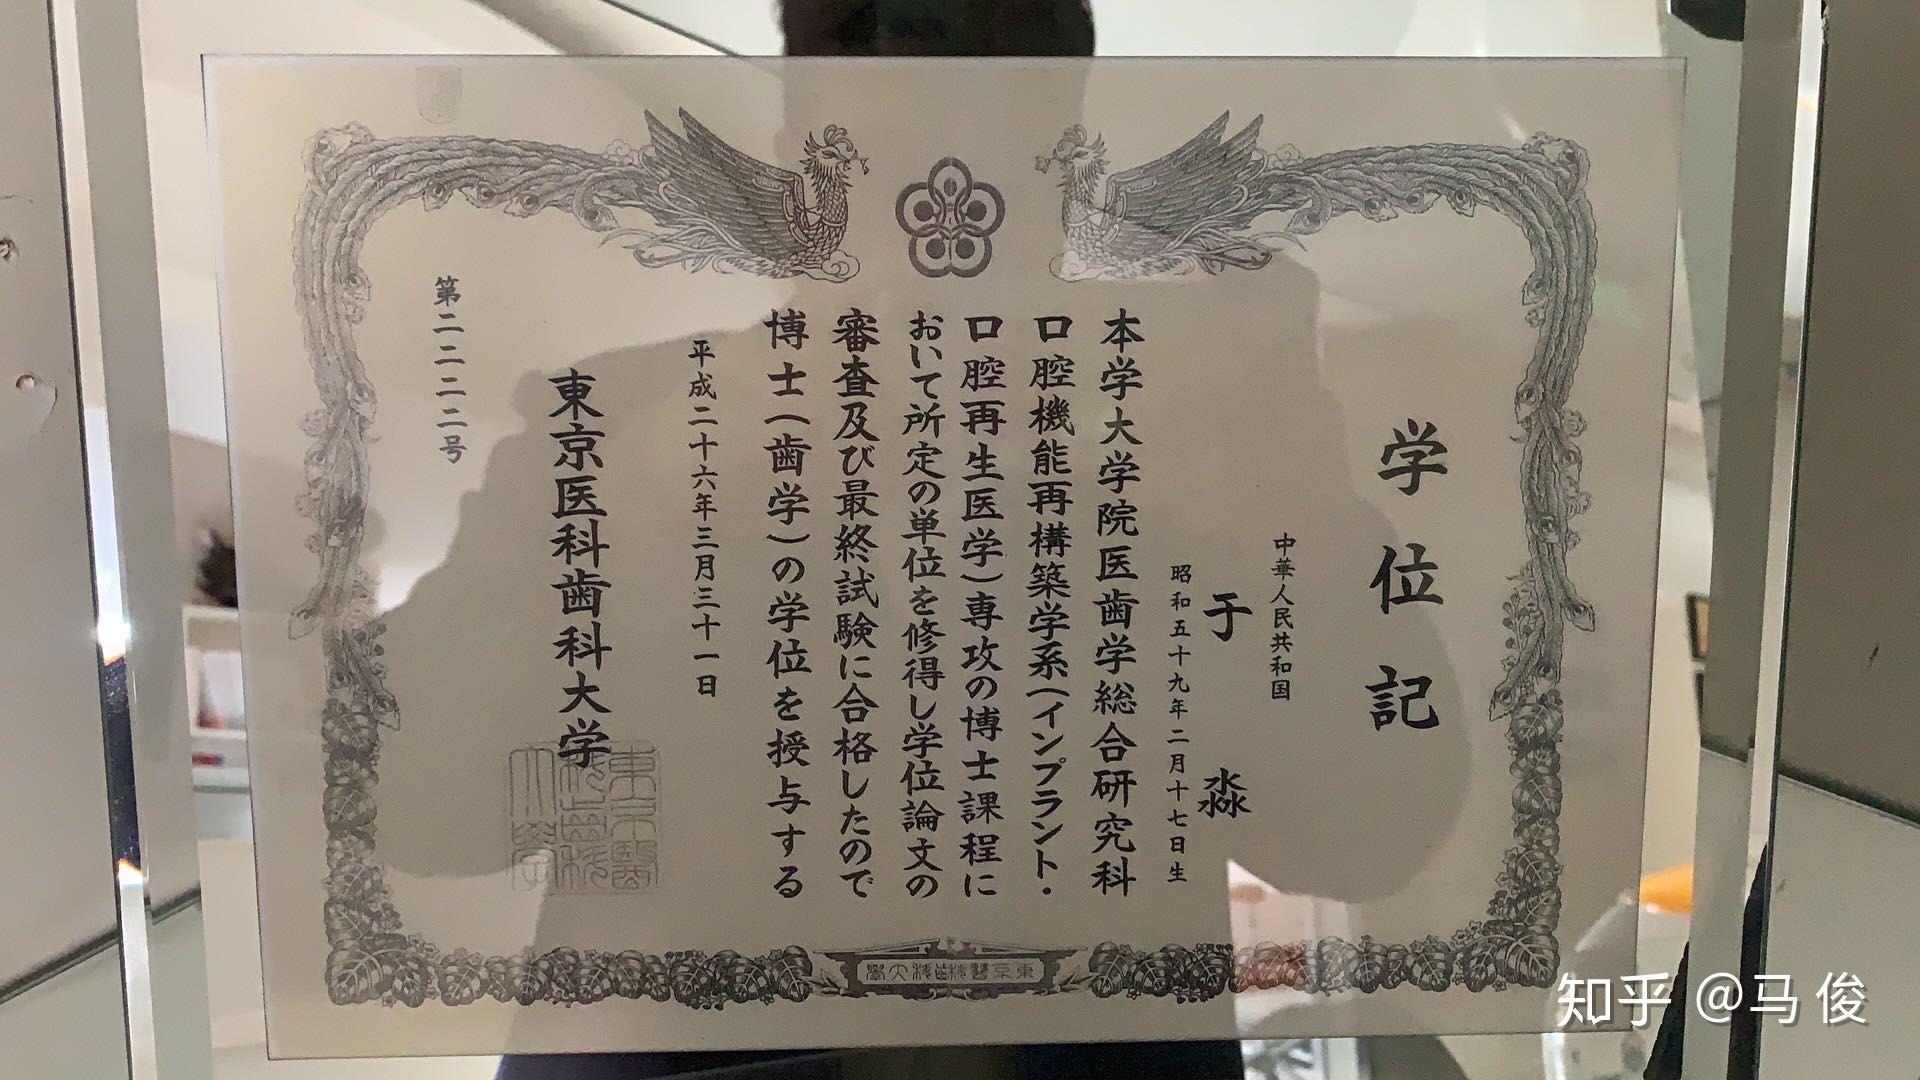 学位記
中華人民共和国
于淼
昭和五十九年二月十七日生
本学大学院医歯学総合研究科
口腔機能再構築学系(インプラント・
口腔再生医学)専攻の博士課程に
おいて所定の単位を修得し学位論文の
審査及び最終試験に合格したので
博士(歯学)の学位を授与する
平成二十六年三月三十一日
東京医科歯科大学
第二二二二号
東京醫科齒科大學
東京醫科齒科大學
知乎 @马俊